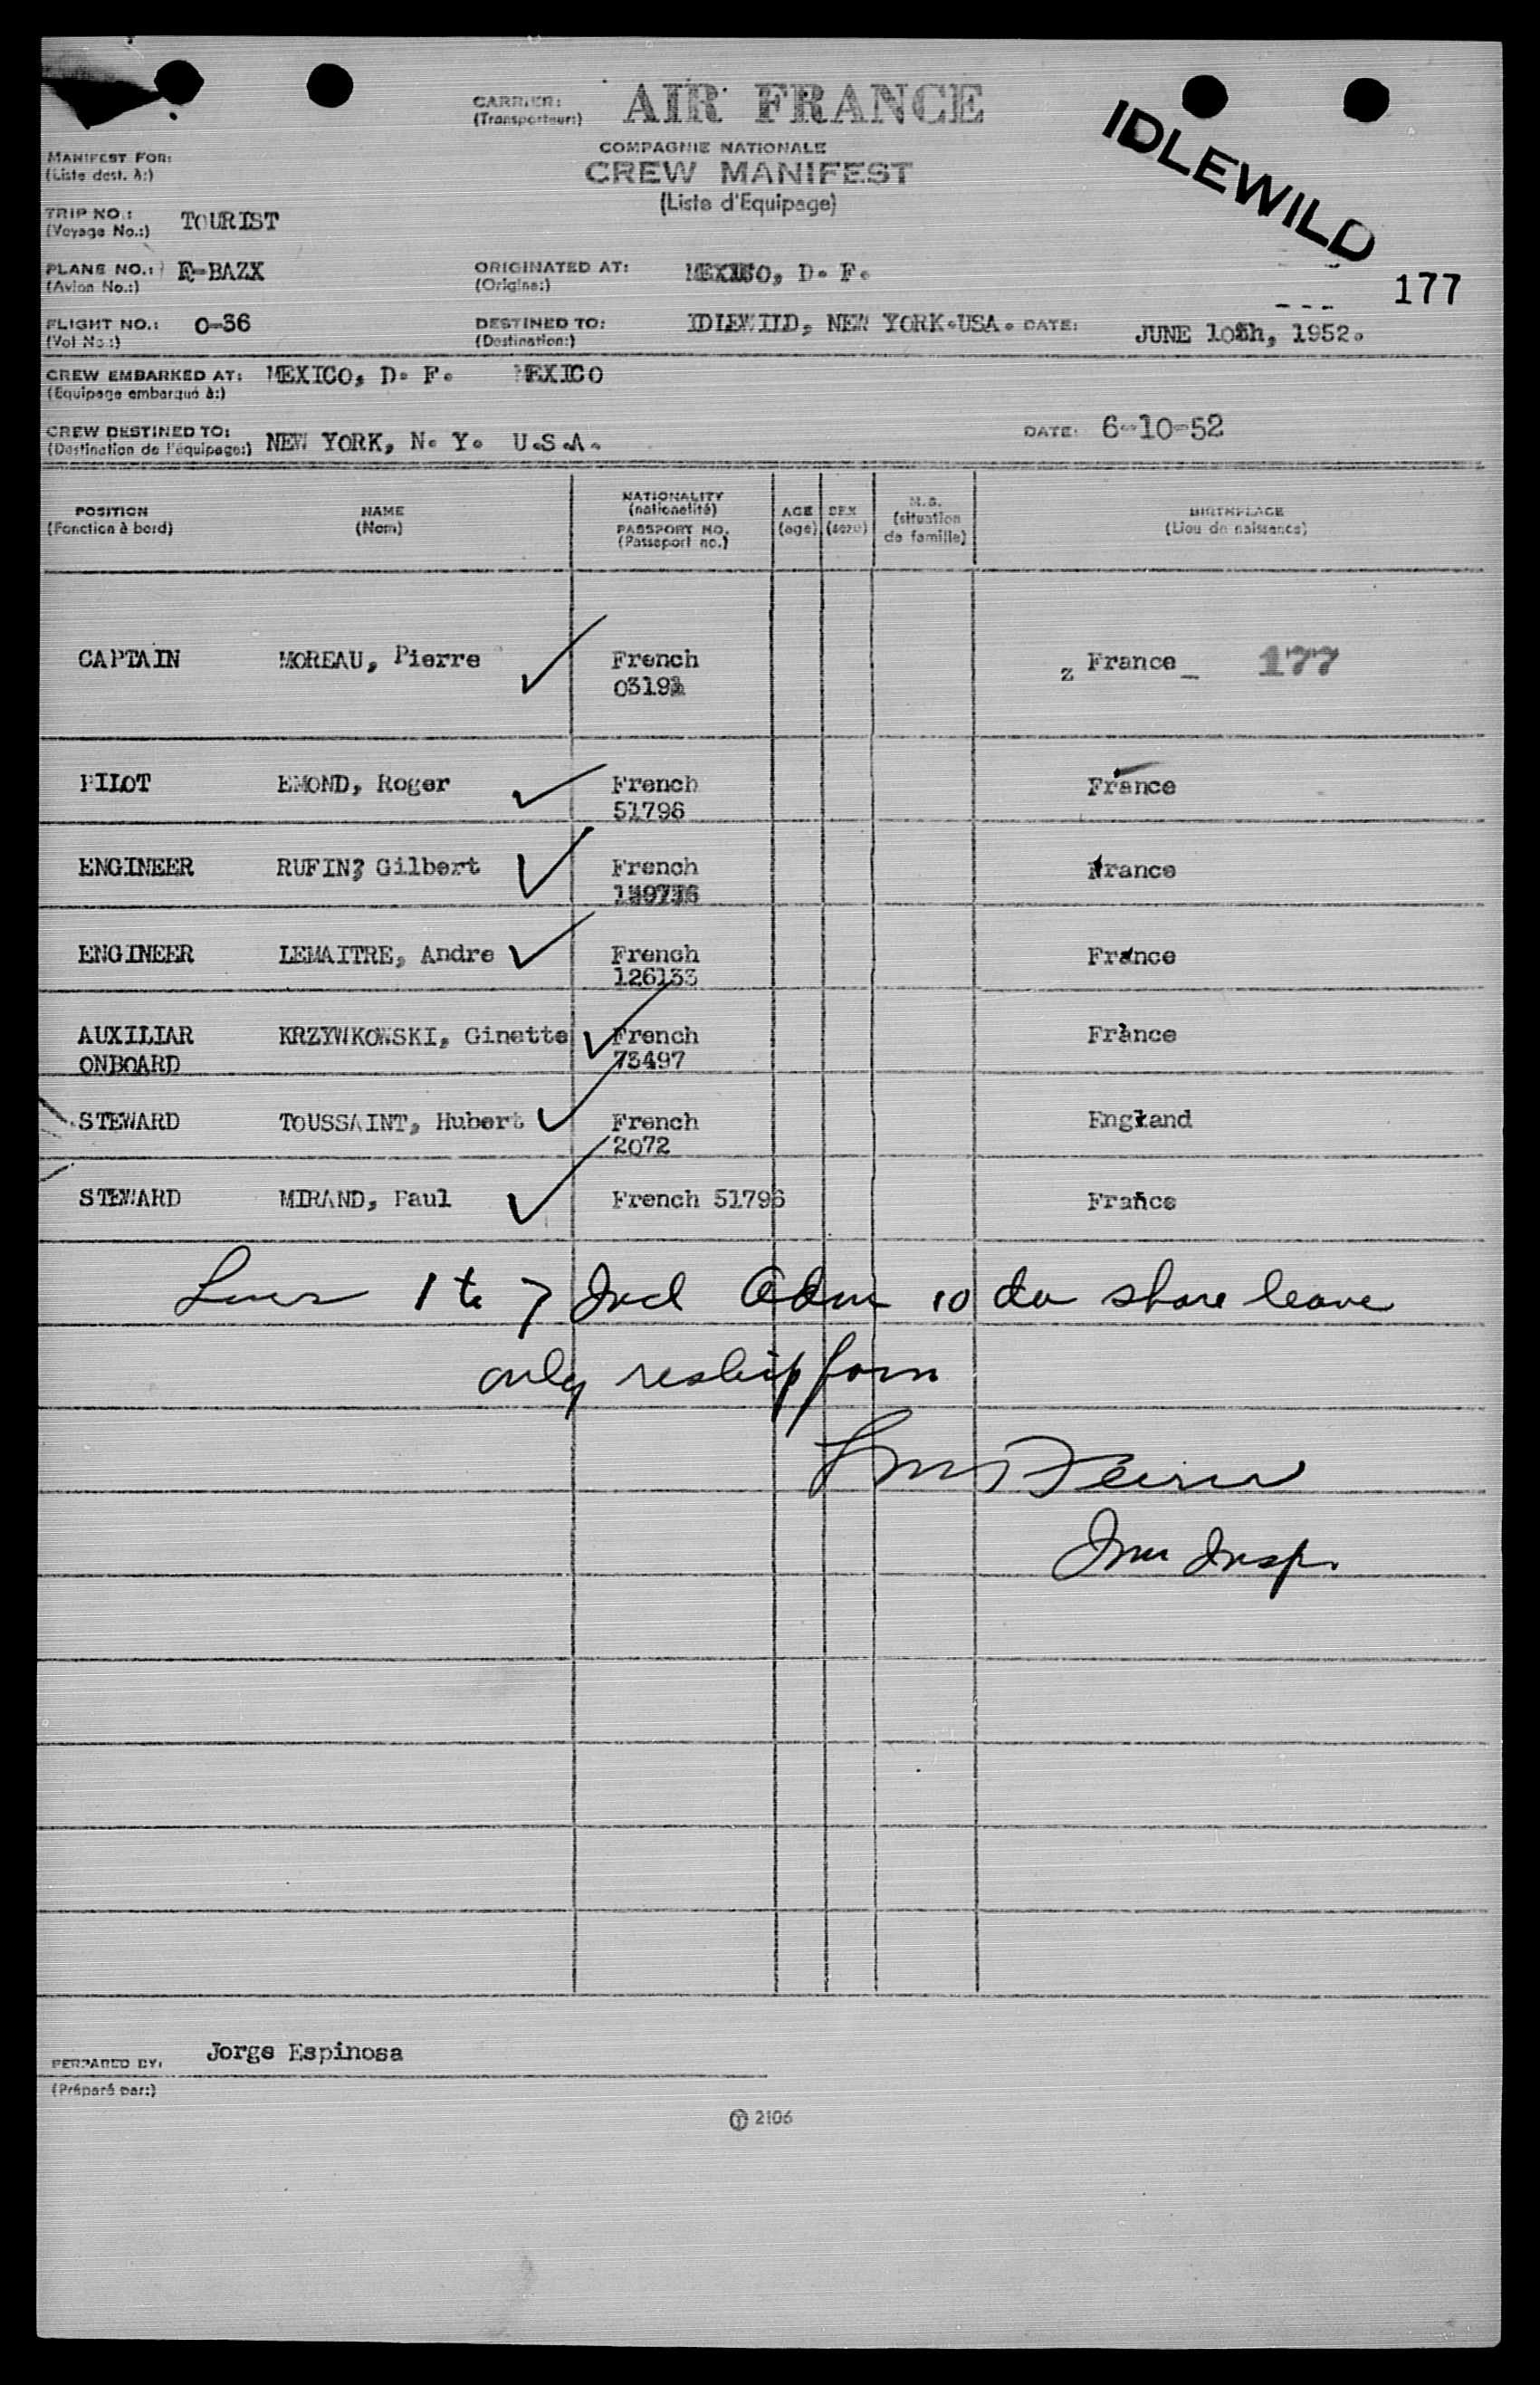 CARRIER: AIR FRANCE
(Transporteur:)
COMPAGNIE NATIONALE
CREW MANIFEST
(Liste d'Equipage)
IDLEWILD
177
MANIFEST FOR:
(Liste dest. à:)
TRIP NO.: TOURIST
(Voyage No.:)
PLANE NO.: F-BAZX
(Avion No.:)
ORIGINATED AT: MEXICO, D. F.
(Origine:)
FLIGHT NO.: 0-36
(Vol No.:)
DESTINED TO: IDLEWILD, NEW YORK.USA. DATE: JUNE 10th, 1952.
(Destination:)
CREW EMBARKED AT: MEXICO, D. F. MEXICO
(Equipage embarqué à:)
CREW DESTINED TO: NEW YORK, N. Y. U.S.A. DATE: 6-10-52
(Destination de l'équipage:)
POSITION NAME NATIONALITY AGE SEX M.S. BIRTHPLACE
(Fonction à bord) (Nom) (nationalité) (age) (sexe) (situation de famille) (Lieu de naissance)
PASSPORT NO.
(Passeport no.)
CAPTAIN MOREAU, Pierre French z France_ 177
PILOT EMOND, Roger French France
51796
ENGINEER RUFIN, Gilbert French France
ENGINEER LEMAITRE, Andre French France
126133
AUXILIAR KRZYWKOWSKI, Ginette French France
ONBOARD 73497
STEWARD TOUSSAINT, Hubert French England
2072
STEWARD MIRAND, Paul French 51796 France
Lines 1 to 7 Incl Adm 10 da shore leave
only reship forn
Imm Insp.
PERPARED BY: Jorge Espinosa
(Préparé par:)
2106